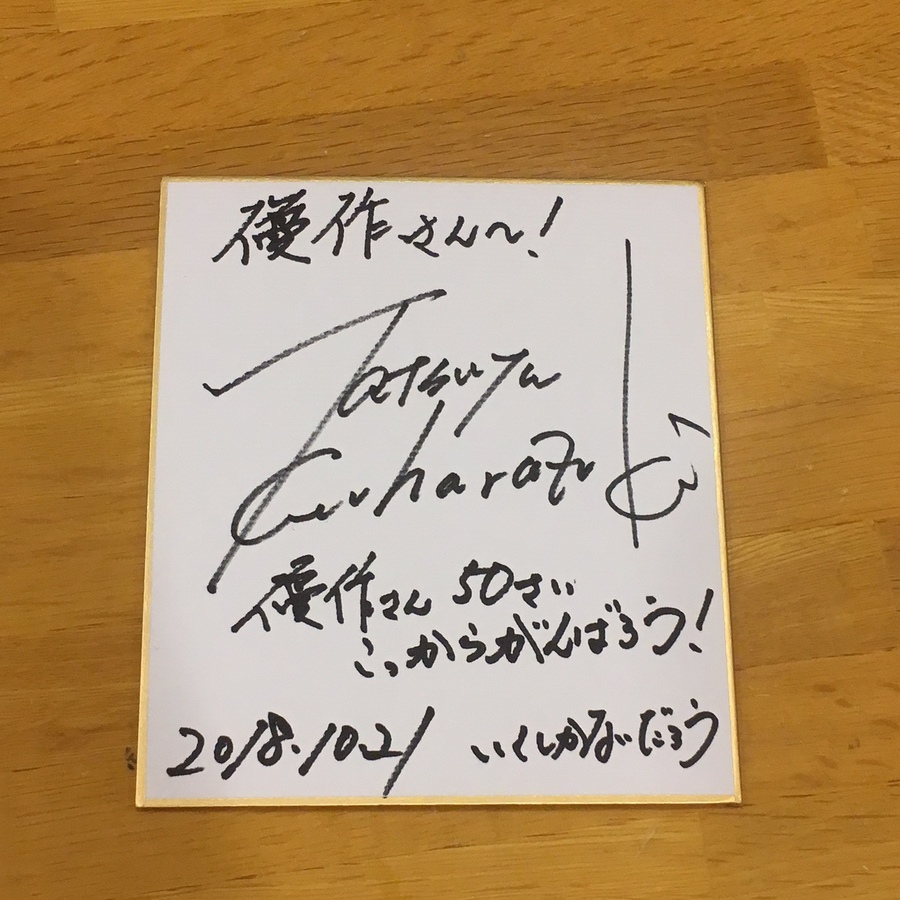 優作さんへ!
Tatsuya
優作さん 50さい
こっからがんばろう!
2018.10.21
いくしかないだろう